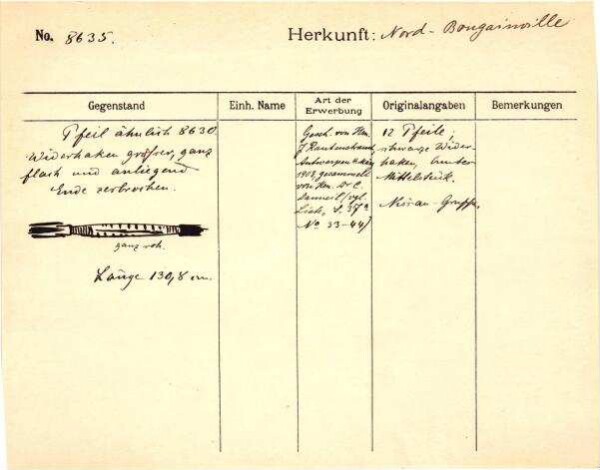 No. 8635.
Herkunft: Nord-Bougainville
Gegenstand
Einh. Name
Art der Erwerbung
Originalangaben
Bemerkungen
Pfeil ähnlich 8630
Widerhaken größer, ganz
flach und anliegend
Ende zerbrochen.
ganz roh.
Länge 130,8 cm.
Gesch. von Hrn.
Antwerpen
gesammelt
von Hrn. Dr C.
vgl.
No 33-44)
12 Pfeile,
schwarze Wider-
haken, bunter
Mittelstück.
Gruppe.